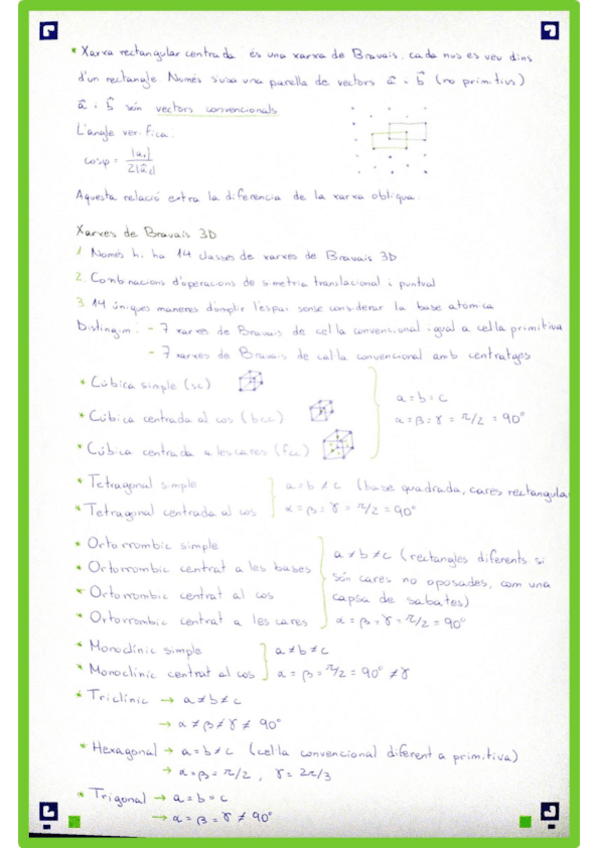 * Xarxa rectangular centrada és una xarxa de Bravais, cada nus es veu dins
d'un rectangle. Només s'usa una parella de vectors a⃗ i b⃗ (no primitius)
a⃗ i b⃗ són vectors convencionals
L'angle verifica:
cosφ = |a₁| / 2|a⃗₂|
Aquesta relació extra la diferencia de la xarxa obliqua.
Xarxes de Bravais 3D
1 Només hi ha 14 classes de xarxes de Bravais 3D
2. Combinacions d'operacions de simetria translacional i puntual
3 14 úniques maneres d'omplir l'espai sense considerar la base atòmica
Distingim: - 7 xarxes de Bravais de cel·la convencional igual a cel·la primitiva
- 7 xarxes de Bravais de cel·la convencional amb centratges
* Cúbica simple (sc)
a = b = c
* Cúbica centrada al cos (bcc)
α = β = γ = π/2 = 90°
* Cúbica centrada a les cares (fcc)
* Tetragonal simple
a = b ≠ c (base quadrada, cares rectangular
* Tetragonal centrada al cos
α = β = γ = π/2 = 90°
* Ortorrombic simple
a ≠ b ≠ c (rectangles diferents si
* Ortorrombic centrat a les bases
són cares no oposades, com una
* Ortorrombic centrat al cos
capsa de sabates)
* Ortorrombic centrat a les cares
α = β = γ = π/2 = 90°
* Monoclínic simple
a ≠ b ≠ c
* Monoclínic centrat al cos
α = β = π/2 = 90° ≠ γ
* Triclínic → a ≠ b ≠ c
→ α ≠ β ≠ γ ≠ 90°
* Hexagonal → a = b ≠ c (cel·la convencional diferent a primitiva)
→ α = β = π/2 , γ = 2π/3
* Trigonal → a = b = c
→ α = β = γ ≠ 90°